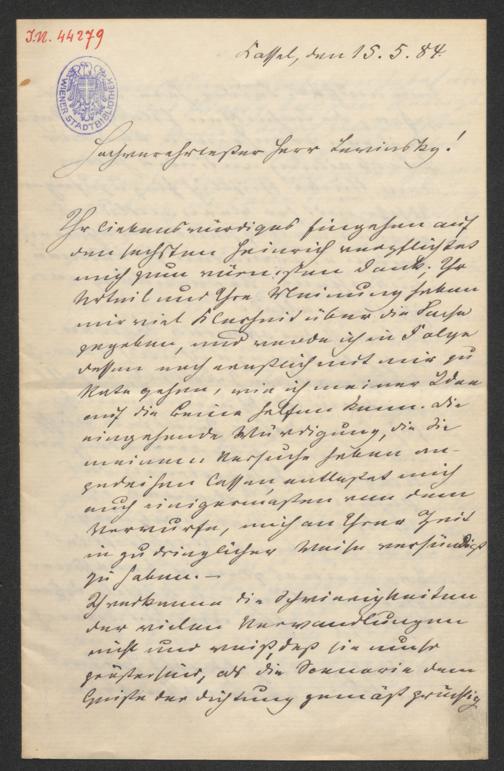 J.N. 44279
WIENER STADTBIBLIOTHEK
Kassel, den 15. 5. 84.
Hochverehrtester Herr Lewinsky!
Ihr liebenswürdiges Eingehen auf
den sechsten Heinrich verpflichtet
mich zum wärmsten Dank. Ihr
Urteil und Ihre Meinung haben
mir viel Klarheit über die Sache
gegeben, und werde ich in Folge
dessen noch ernstlich mit mir zu
Rate gehen, wie ich meiner Idee
auf die Beine helfen kann. Die
eingehende Würdigung, die Sie
meinem Versuche haben an-
gedeihen lassen entlastet mich
auch einigermaßen von dem
Vorwurfe, mich an Ihrer Zeit
in zudringlicher Weise versündigt
zu haben. —
Ich erkenne die Schwierigkeiten
der vielen Verwandlungen
nicht und weiß, daß sie umso
größer sind, als die Scenerie dem
Geiste der Dichtung gemäß prächtig